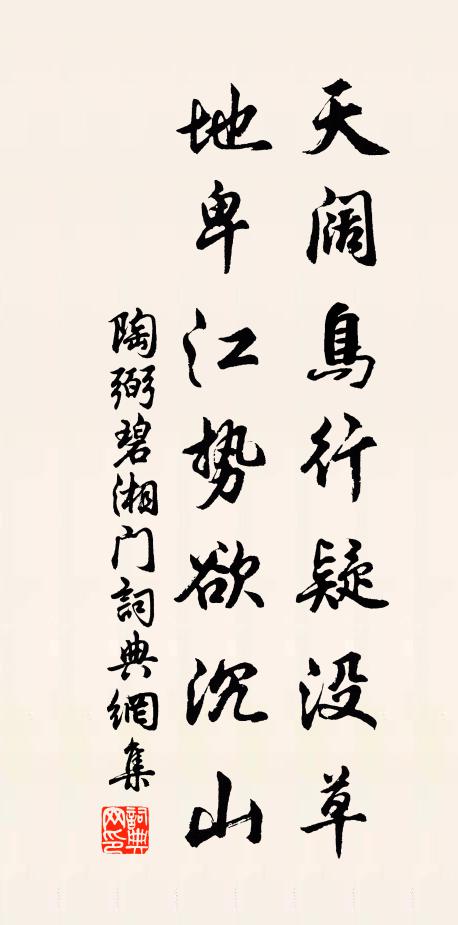 天阔鳥行疑没草
地卑江势欲沉山
陶弼碧湘门詞典網集
詞典网印